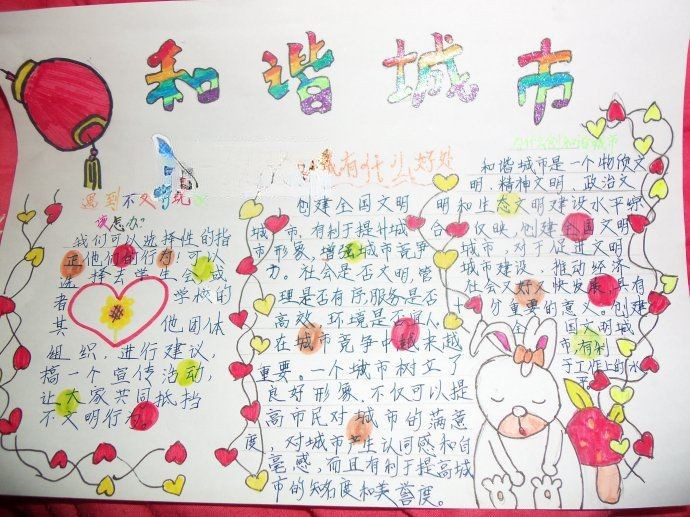 和谐城市
遇到不文明现
该怎办?
我们可以选择性的指
正他们的行为!可以
选择去学生会,或
者 学校的
其 他团体
组织,进行建议,
搞一个宣传活动,
让大家共同抵挡
不文明行为。
城有什么好处
创建全国文明
城市,有利于提升城
市形象,增强城市竞争
力。社会是否文明,管
理是否有序,服务是否
高效,环境是否宜人,
在城市竞争中越来越
重要。一个城市树立了
良好形象,不仅可以提
高市民对城市的满意
度,对城市产生认同感和自
豪感,而且有利于提高城
市的知名度和美誉度。
和谐城市
和谐城市是一个物质文
明,精神文明,政治文
明和生态文明建设水平综
合 反映,创建全国文明
城市,对于促进文明
城市建设,推动经济
社会又好又快发展,具有
十分重要的意义。创建
全 国文明城
市,有利
于工作上的水
平。